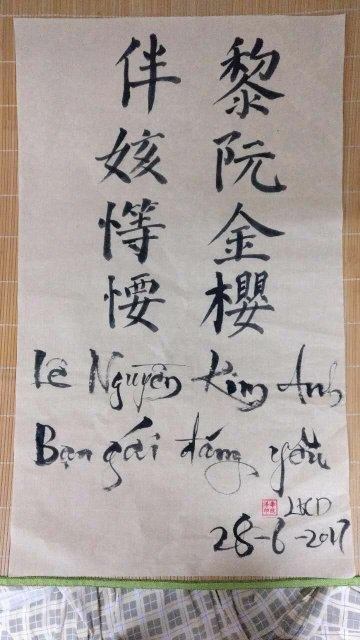 黎阮金櫻
伴姟𢞅
Lê Nguyễn Kim Anh
Bạn gái đáng yêu
28-6-2017